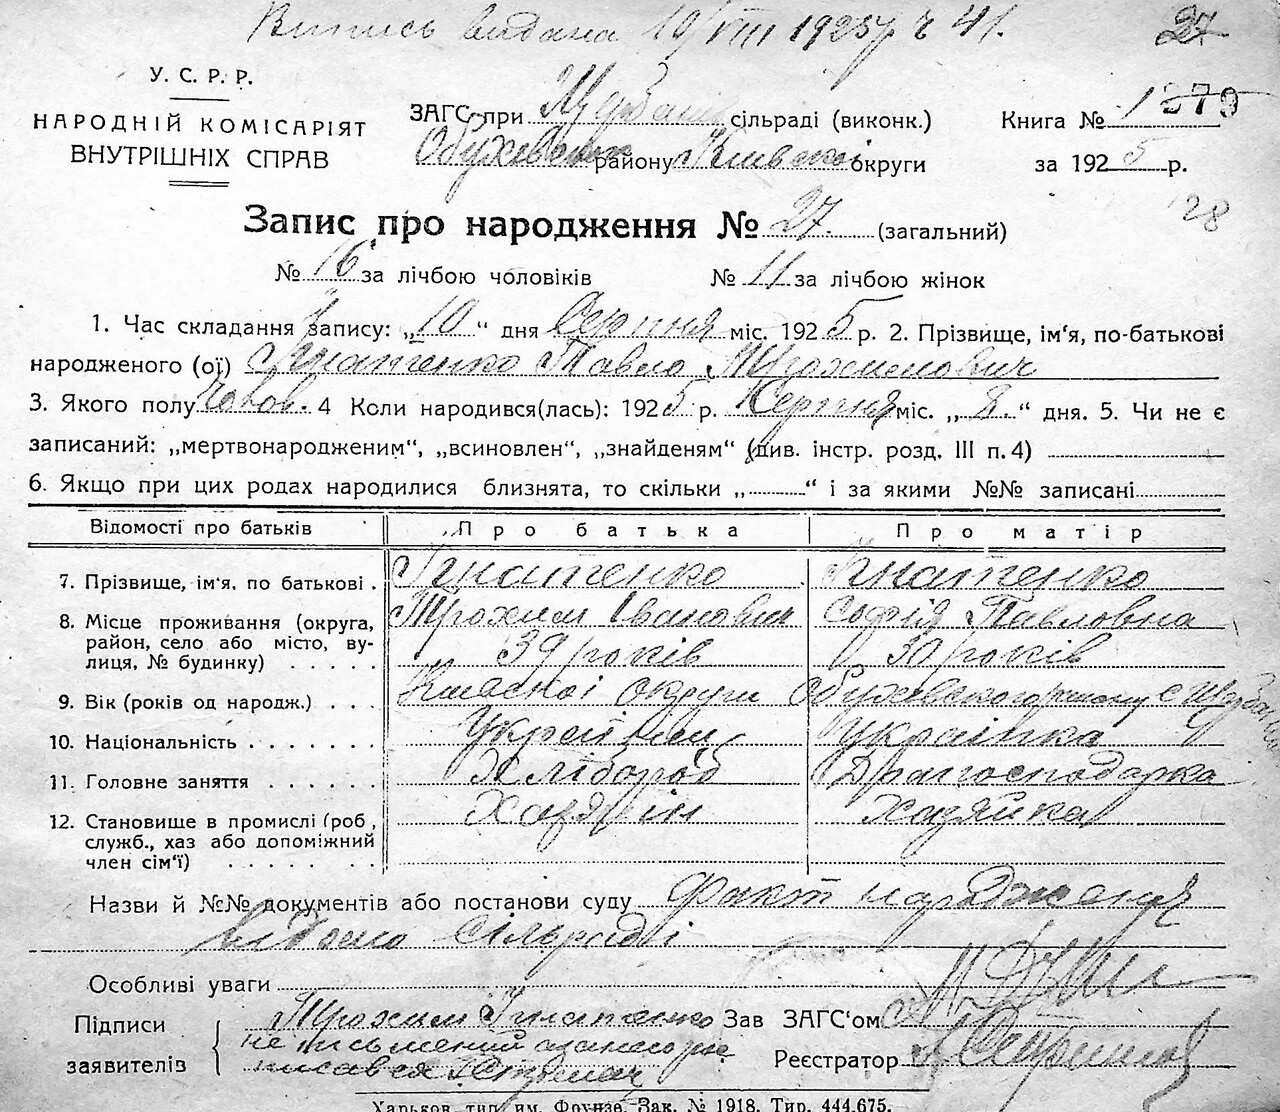 Витпись видана 10/VIII 1925 р ч 41.
27
У. С. Р. Р.
НАРОДНІЙ КОМІСАРІЯТ
ВНУТРІШНІХ СПРАВ
ЗАГС при сільраді (виконк.)
Обухівськ району Київської округи
Книга № 1379
за 1925 р.
28
Запис про народження № 27. (загальний)
№ 16 за лічбою чоловіків № 11 за лічбою жінок
1. Час складання запису: „10“ дня Серпня міс. 1925 р. 2. Прізвище, ім'я, по-батькові
народженого (ої) Ігнатенко Павло Трохимович
3. Якого полу Чолов. 4 Коли народився(лась): 1925 р. Серпня міс. „8.“ дня. 5. Чи не є
записаний: „мертвонародженим“, „всиновлен“, „знайденям“ (див. інстр. розд. III п. 4)
6. Якщо при цих родах народилися близнята, то скільки „ “ і за якими №№ записані
Відомості про батьків Про батька Про матір
7. Прізвище, ім'я, по батькові . Ігнатенко Ігнатенко
8. Місце проживання (округа, Трохим Іванович Софія Павловна
район, село або місто, ву-
лиця, № будинку) . . . . . 39 років 30 років
9. Вік (років од народж.) . . . Київської округи Обухівського району с
10. Національність . . . . . . . Українец Українка
11. Головне заняття . . . . . . Хлібороб Домгосподарка
12. Становище в промислі (роб, Хазяїн Хазяйка
служб., хаз або допоміжний
член сім'ї) . . . . . .
Назви й №№ документів або постанови суду факт народження
відомо сільраді
Особливі уваги
Підписи
заявителів
Трохим Ігнатенко
не письменний
писався
Зав ЗАГС'ом
Реєстратор
Харьков, тип. им. Фрунзе. Зак. № 1918. Тир. 444.675.